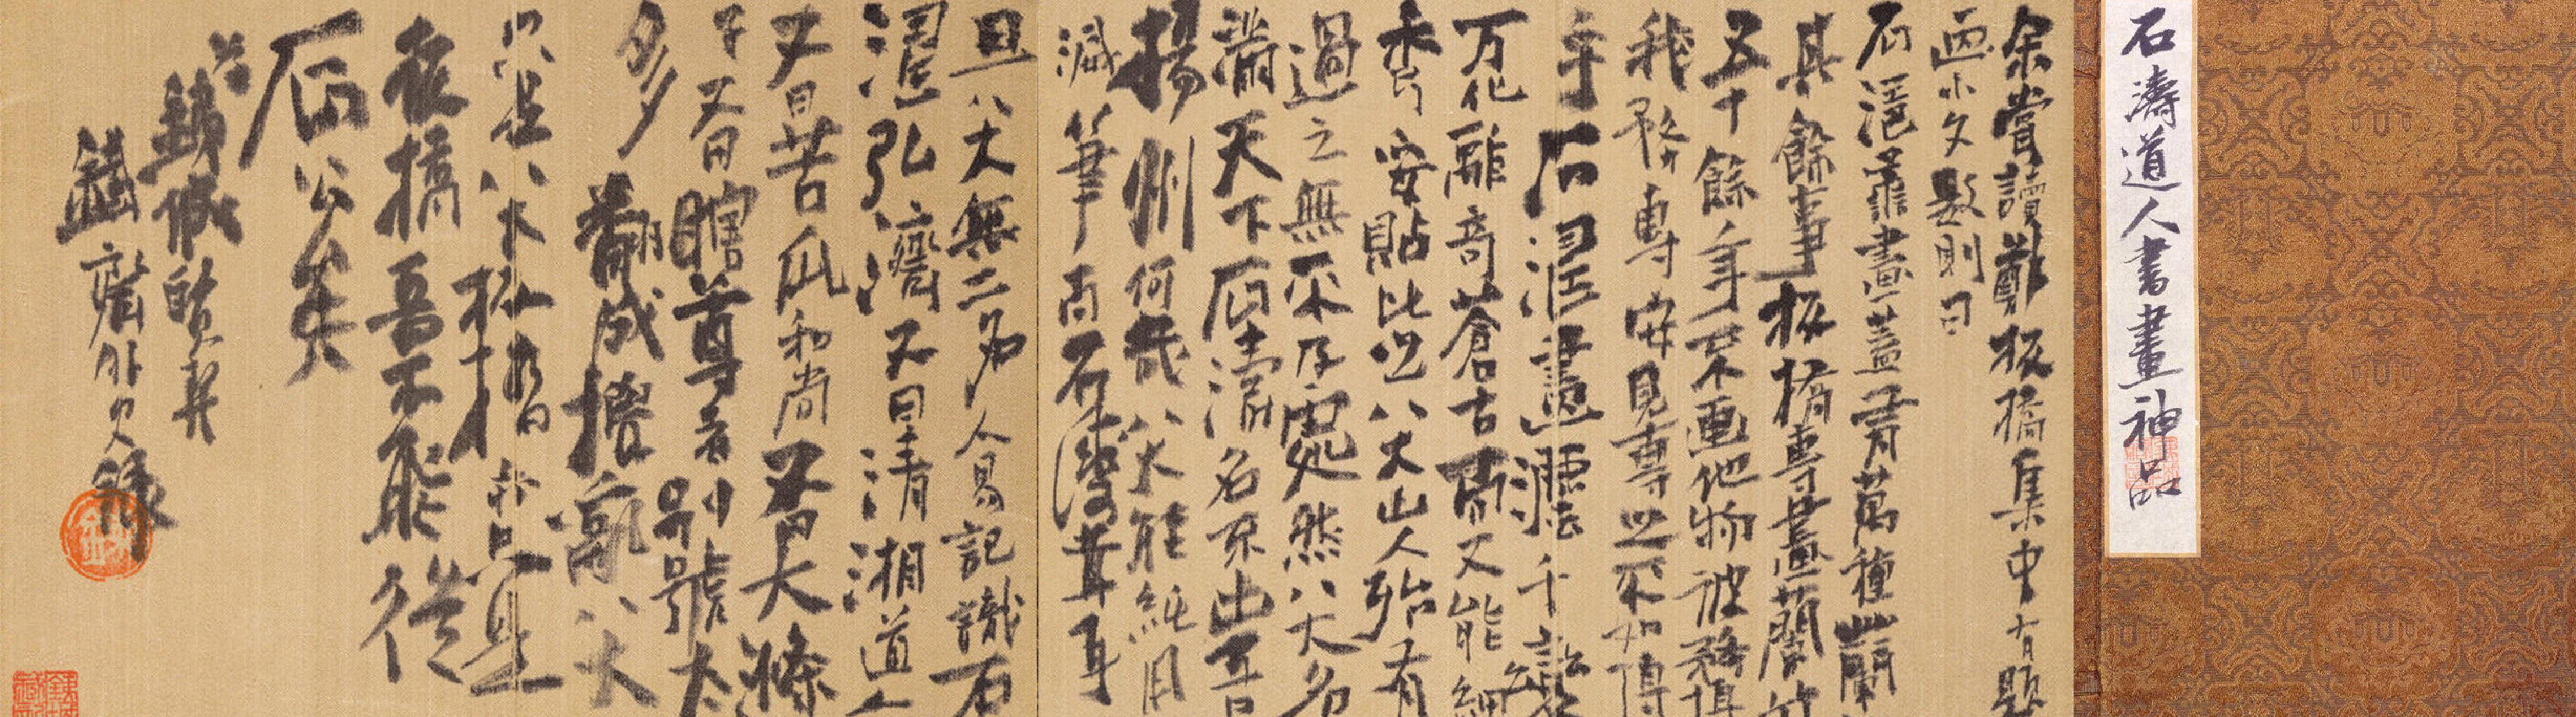 石濤道人書畫神品
余嘗讀鄭板橋集中有題
画小文數則曰
石濤善畫蓋有萬種蘭
其餘事板橋專畫蘭竹
五十餘年來不画他物彼務博
我務專安見專之不如博
乎石濤畫法千變
万化離奇蒼古而又能細
秀妥貼比之八大山人殆有
過之無不及處然八大名
滿天下石濤名不出吾
揚州何哉八大能純用
減筆而石濤微茸耳
且八大無二名人易記識石
濤弘濟又曰清湘道人
又曰苦瓜和尚又曰大滌
子又曰瞎尊者別號太
多翻成攪亂八大
只是八大板橋亦只是
板橋吾不能從
石公矣
鐵齋外史録